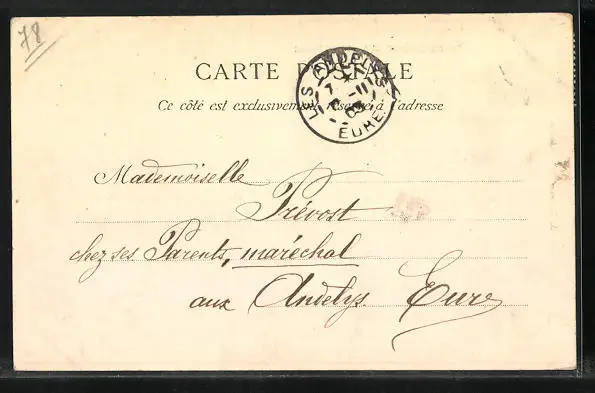 78
CARTE POSTALE
Ce côté est exclusivement réservé à l'adresse
LES ANDELYS
EURE
Mademoiselle
Prévost
chez ses Parents, maréchal
aux Andelys. Eure